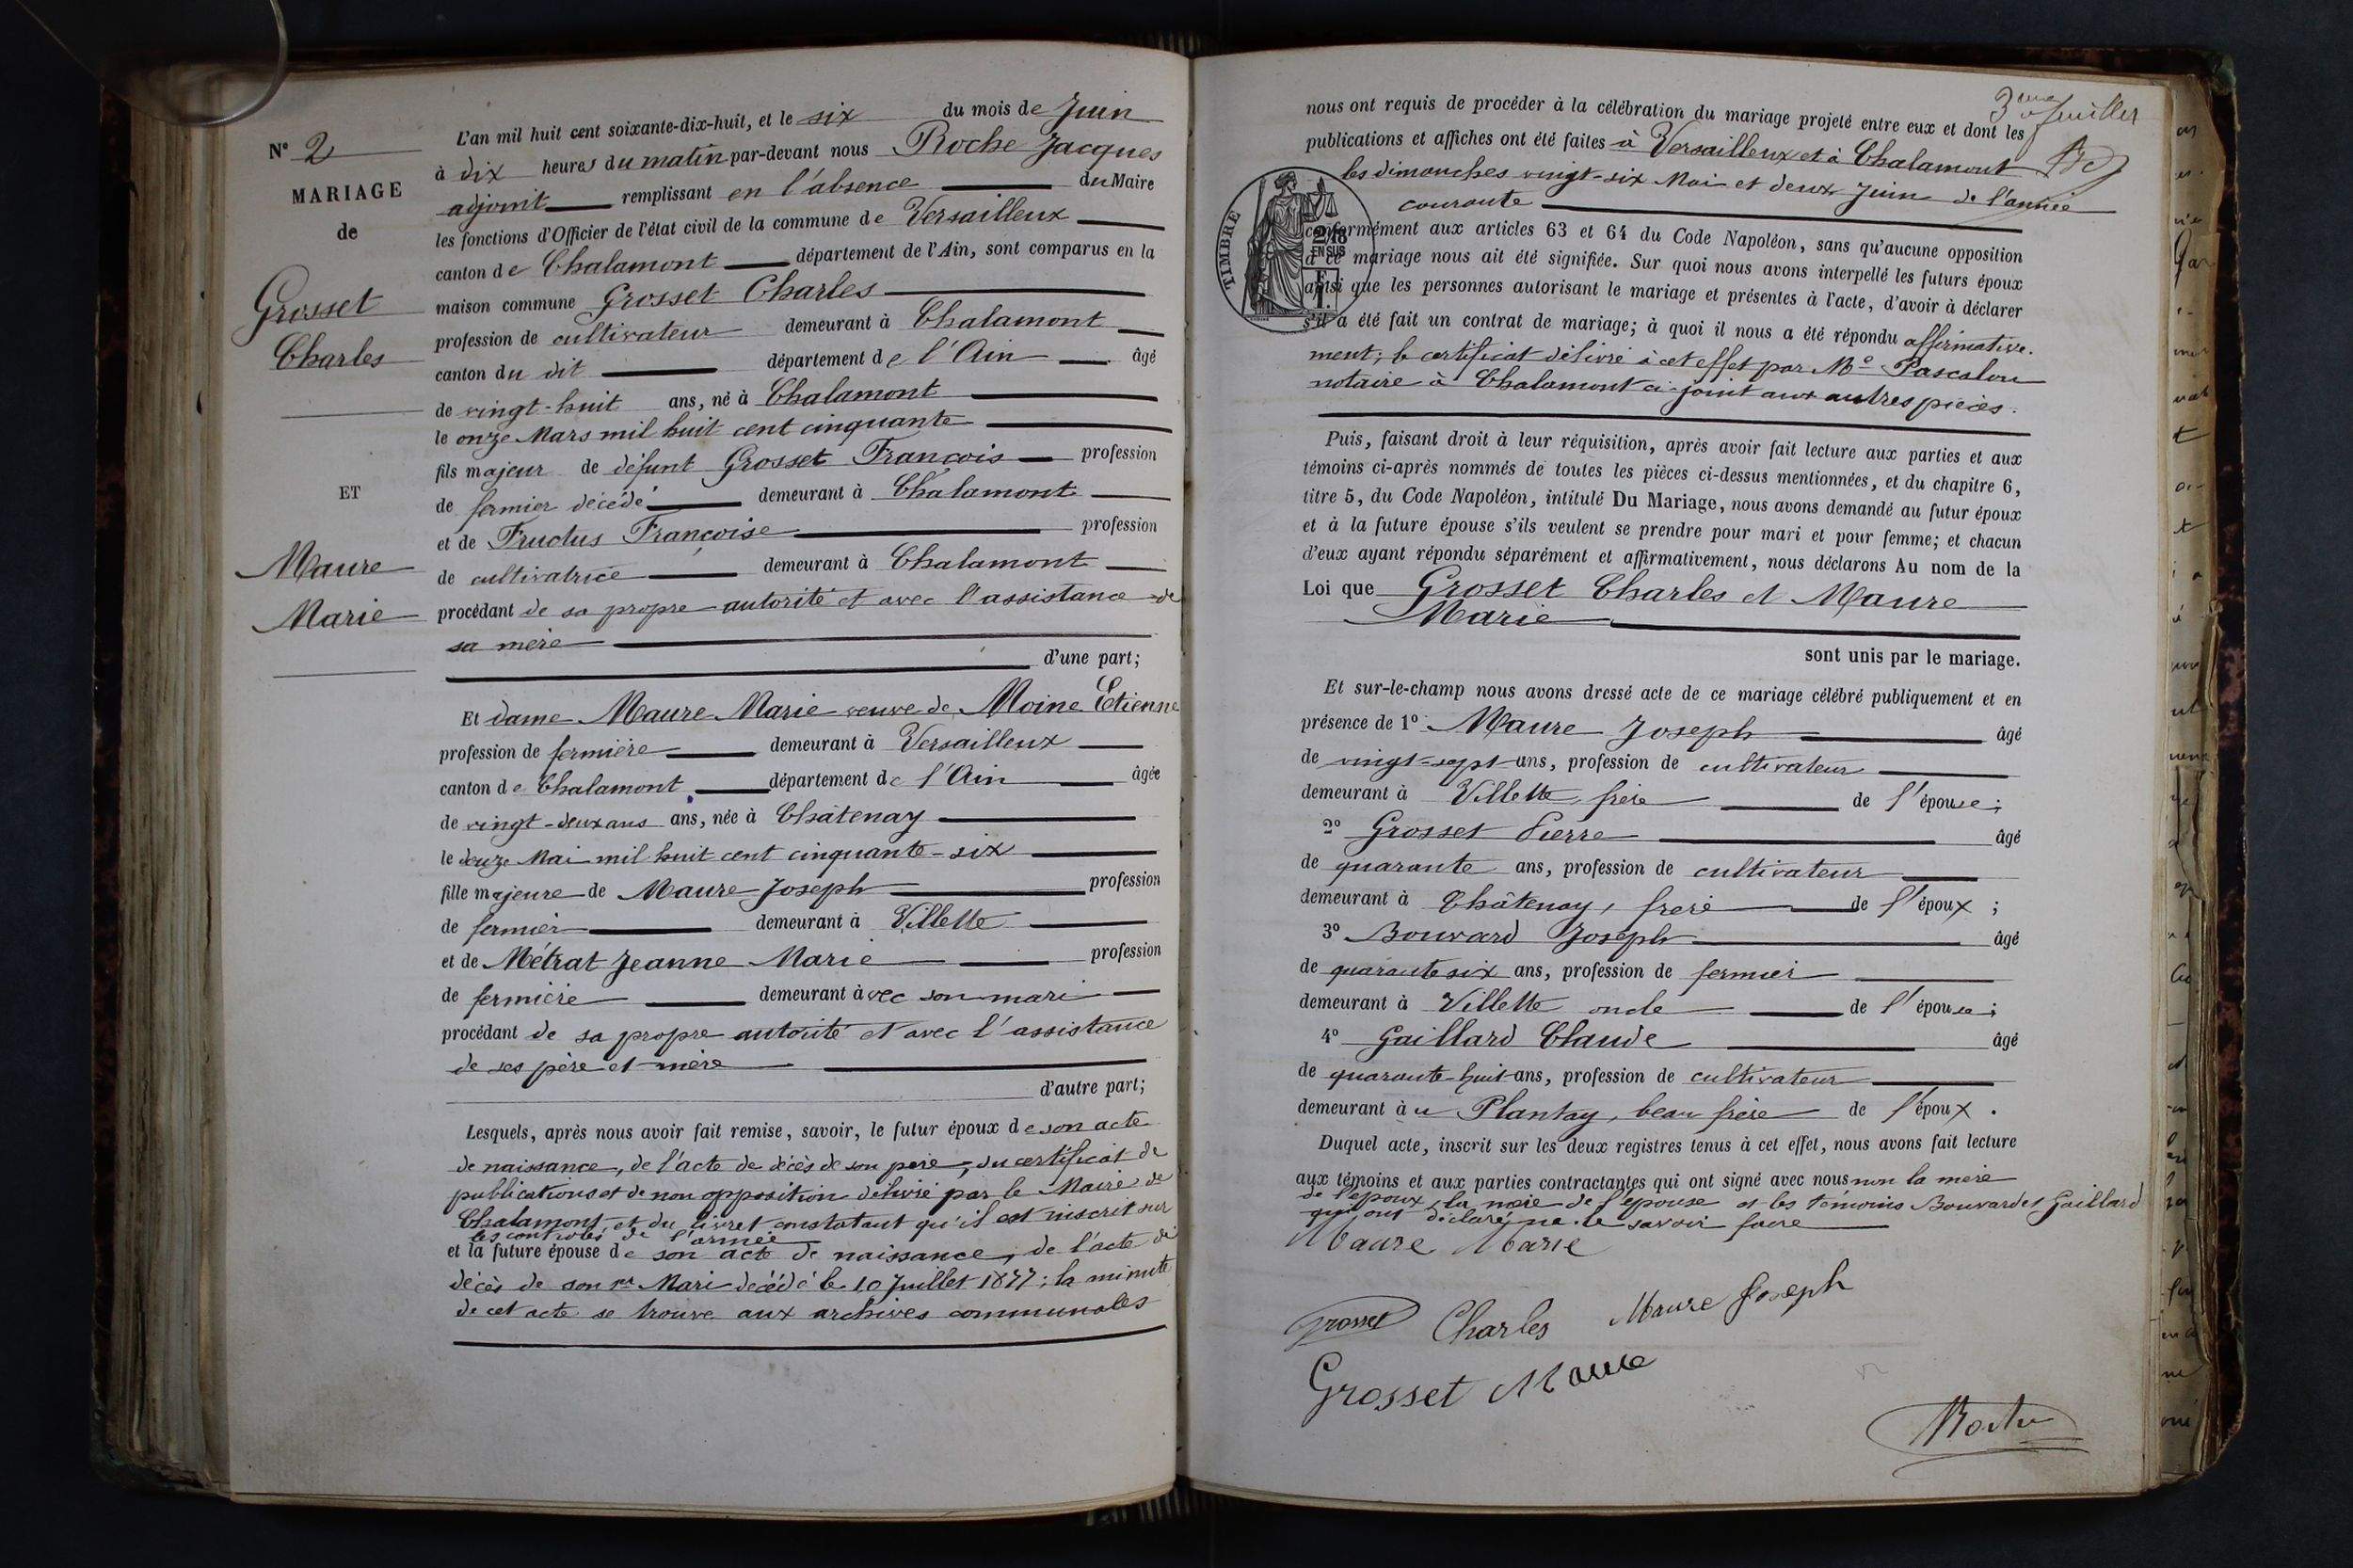 N° 2
MARIAGE
de
Grosset
Charles
ET
Maure
Marie
L'an mil huit cent soixante-dix-huit, et le six du mois de Juin
à dix heures du matin par-devant nous Roche Jacques
adjoint remplissant en l'absence du Maire
les fonctions d'Officier de l'état civil de la commune de Versailleux
canton de Chalamont département de l'Ain, sont comparus en la
maison commune Grosset Charles
profession de cultivateur demeurant à Chalamont
canton du dit département de l'Ain âgé
de vingt-huit ans, né à Chalamont
le onze Mars mil huit cent cinquante
fils majeur de défunt Grosset Francois profession
de fermier décédé demeurant à Chalamont
et de Fructus Françoise profession
de cultivatrice demeurant à Chalamont
procédant de sa propre autorité et avec l'assistance de
sa mère
d'une part;
Et dame Maure Marie veuve de Moine Etienne
profession de fermière demeurant à Versailleux
canton de Chalamont département de l'Ain âgée
de vingt-deux ans ans, née à Châtenay
le douze Mai mil huit cent cinquante-six
fille majeure de Maure Joseph profession
de fermier demeurant à Villette
et de Métrat Jeanne Marie profession
de fermière demeurant avec son mari
procédant de sa propre autorité et avec l'assistance
de ses père et mère
d'autre part;
Lesquels, après nous avoir fait remise, savoir, le futur époux de son acte
de naissance, de l'acte de décès de son père, du certificat de
publications et de non opposition délivré par le Maire de
Chalamont, et du livret constatant qu'il est inscrit sur
les controles de l'armée
et la future épouse de son acte de naissance, de l'acte de
décès de son 1er Mari décédé le 10 Juillet 1877; la minute
de cet acte se trouve aux archives communales
3eme feuillet
nous ont requis de procéder à la célébration du mariage projeté entre eux et dont les
publications et affiches ont été faites à Versailleux et à Chalamont
les dimanches vingt-six Mai et deux Juin de l'année
courante
TIMBRE
2/10
EN SUS
conformément aux articles 63 et 64 du Code Napoléon, sans qu'aucune opposition
à ce mariage nous ait été signifiée. Sur quoi nous avons interpellé les futurs époux
ainsi que les personnes autorisant le mariage et présentes à l'acte, d'avoir à déclarer
s'il a été fait un contrat de mariage; à quoi il nous a été répondu affirmative-
ment; le certificat délivré à cet effet par Me Pascalon
notaire à Chalamont ci-joint aux autres pièces.
Puis, faisant droit à leur réquisition, après avoir fait lecture aux parties et aux
témoins ci-après nommés de toutes les pièces ci-dessus mentionnées, et du chapitre 6,
titre 5, du Code Napoléon, intitulé Du Mariage, nous avons demandé au futur époux
et à la future épouse s'ils veulent se prendre pour mari et pour femme; et chacun
d'eux ayant répondu séparément et affirmativement, nous déclarons Au nom de la
Loi que Grosset Charles et Maure
Marie
sont unis par le mariage.
Et sur-le-champ nous avons dressé acte de ce mariage célébré publiquement et en
présence de 1° Maure Joseph âgé
de vingt-sept ans, profession de cultivateur
demeurant à Villette, frère de l'épouse;
2° Grosset Pierre âgé
de quarante ans, profession de cultivateur
demeurant à Châtenay, frere de l'époux;
3° Bouvard Joseph âgé
de quarante six ans, profession de fermier
demeurant à Villette oncle de l'épouse;
4° Gaillard Claude âgé
de quarante-huit ans, profession de cultivateur
demeurant au Plantay, beau frère de l'époux.
Duquel acte, inscrit sur les deux registres tenus à cet effet, nous avons fait lecture
aux témoins et aux parties contractantes qui ont signé avec nous non la mère
de l'époux, la mère de l'épouse et les témoins Bouvard et Gaillard
qui ont déclaré ne le savoir faire
Maure Marie
Grosset Charles Maure Joseph
Grosset Maure
Roche